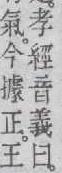 氣。今據正。王
孝經音義曰。